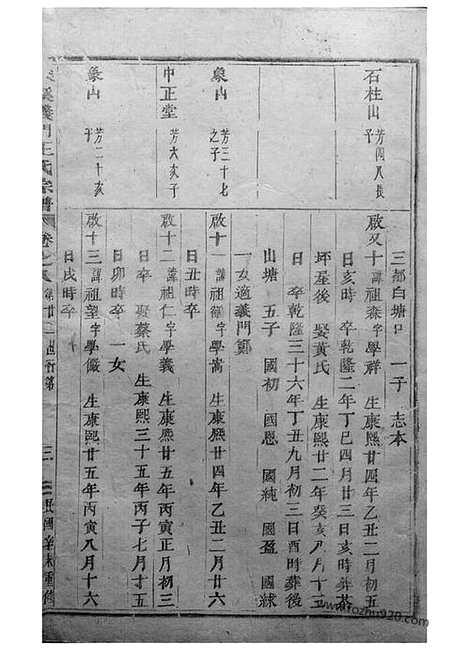 三都白塘口 一子 志本
石柱山 芳四八長子
啟又十 諱祖森字學祥 生康熙廿四年乙丑二月初五
日亥時 卒乾隆二年丁巳四月廿三日亥時葬
坪屋後 娶黃氏 生康熙廿二年癸亥 月十三
日 卒乾隆三十六年丁丑九月初三日酉時葬後
山塘 五子 國初 國恩 國純 國盈 國球
一女適義門鄭
象山 芳三十七之子
啟十一 諱祖 字學嵩 生康熙廿四年乙丑二月廿六
日丑時卒
中正堂 芳六亥子
啟十二 諱祖仁字學義 生康熙廿五年丙寅正月初三
日卒 娶蔡氏 生康熙三十五年丙子七月十二
日卯時卒 一女
象山 芳二十亥子
啟十三 諱祖望字學儼 生康熙廿五年丙寅八月十六
日戌時卒
溪義門王氏宗譜 卷之 第廿一世行第 三 民國辛未重修
www.rozhu920.com